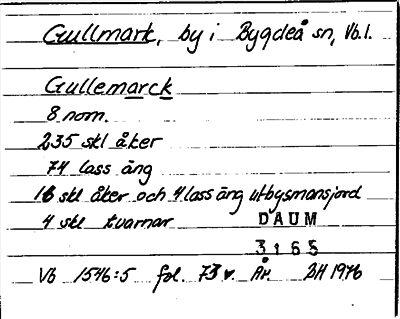 Gullmark, by i Bygdeå sn, Vb.l.
Gullemarck
8 nom.
235 skl åker
74 lass äng
16 skl åker och 4 lass äng utbysmansjord
4 skl tvarnar
DAUM
3165
Vb 1546:5 fol. 73 v. Åm BH 1976